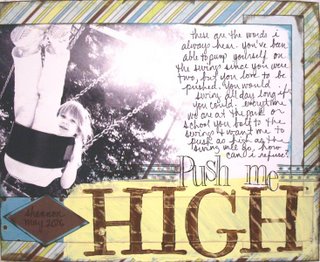 these are the words i
always hear. you've been
able to pump yourself on
the swing since you were
two, but you love to be
pushed. you would
swing all day long if
you could. everytime
we are at the park or
school you bolt to the
swings & want me to
push as high as the
swing will go. how
can i refuse?
Push me
HIGH
shannon
may 2006